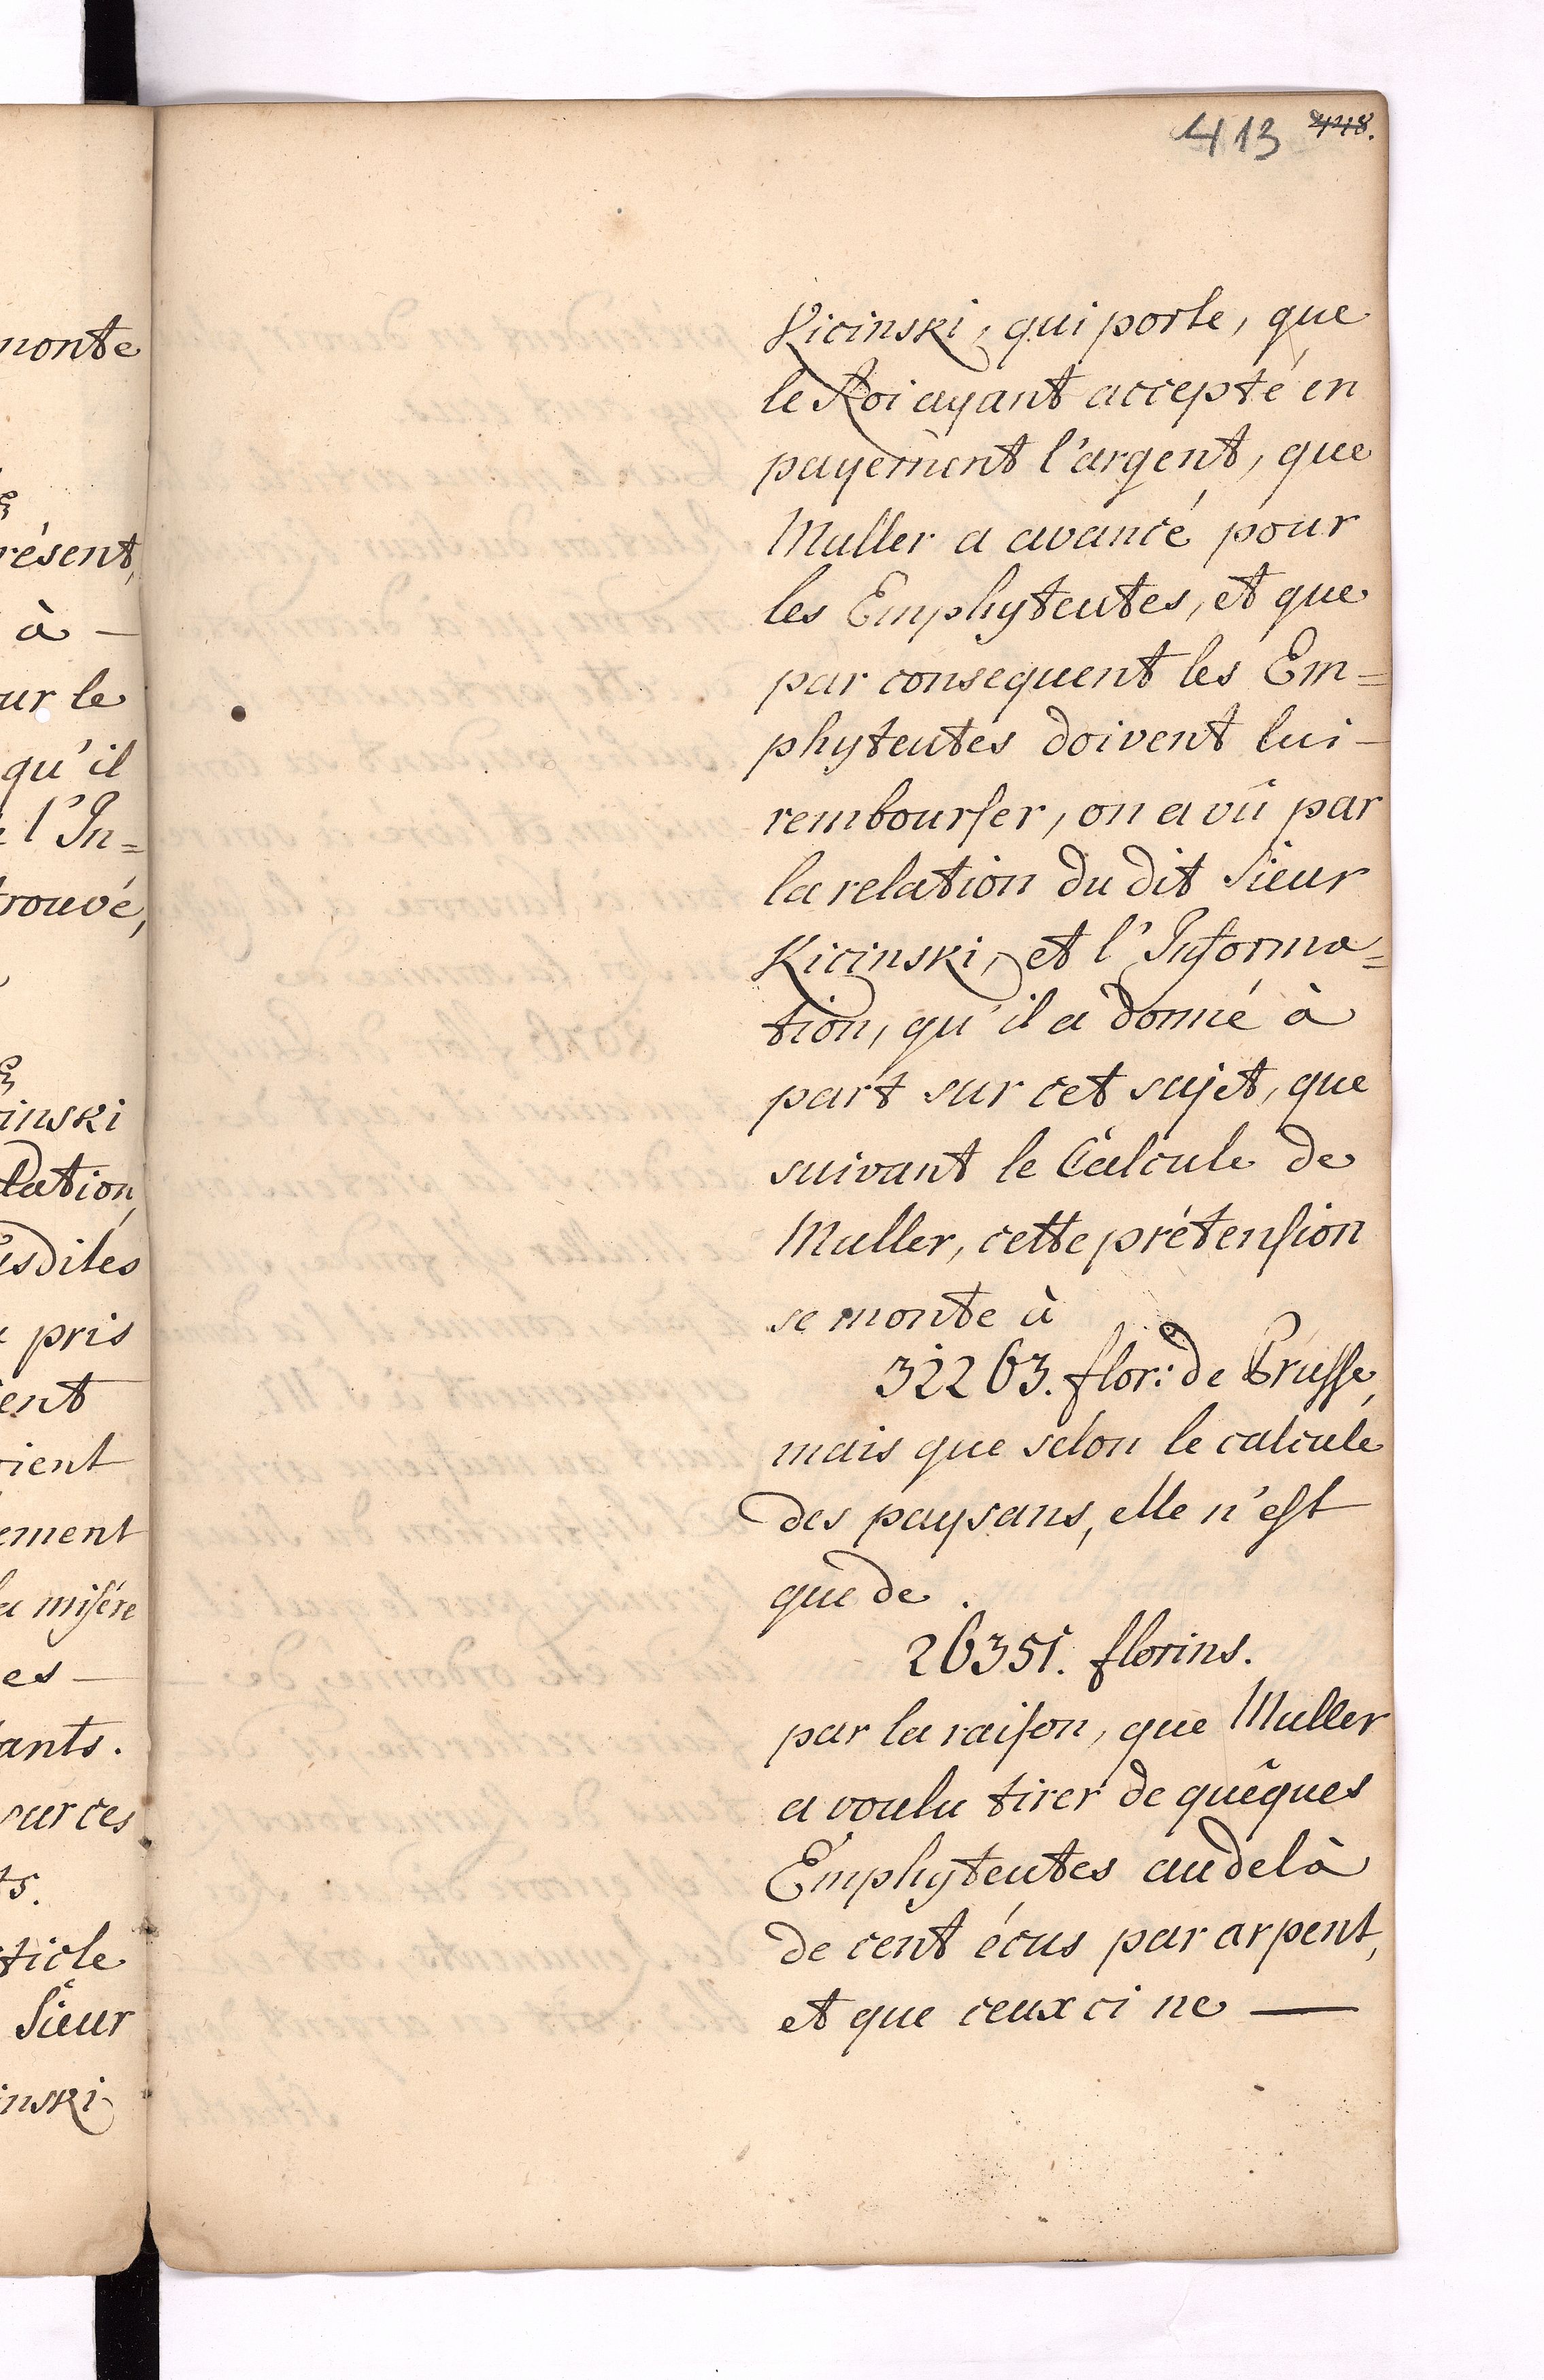 413 448.
Kicinski, qui porte, que
le Roi ayant accepté en
payement l'argent, que
Muller a avancé pour
les Emphyteutes, et que
par consequent les Em=
phyteutes doivent lui —
rembourser, on a vû par
la relation du dit Sieur
Kicinski, et l'Informa=
tion, qu'il a donné à
part sur cet sujet, que
suivant le Calcule de
Muller, cette prétension
se monte à
32263. flor: de Prusse,
mais que selon le calcule
des paysans, elle n'est
que de .
26351. florins.
par la raison, que Muller
a voulu tirer de quêques
Emphyteutes au delà
de cent écus par arpent,
et que ceux ci ne —
monte
résent,
à —
ur le
qu'il
l'In=
trouvé,
inski
lation,
usdites
pris
ent
rient
ement
la misére
es —
ants.
sur ces
ts.
ticle
Sieur
inski